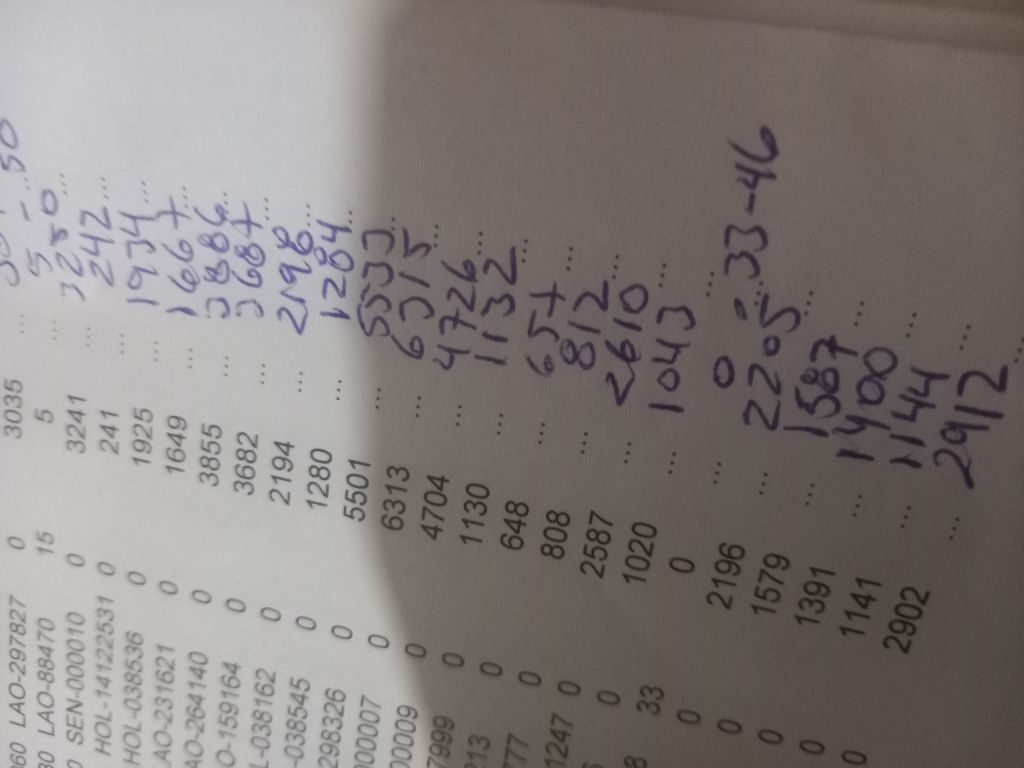 060 LAO-297827 0 3035 ... -50
80 LAO-88470 15 5 ... 5 ...
0 SEN-000010 0 3241 ... 3250 ...
HOL-14122531 0 241 ... 242 ...
HOL-038536 0 1925 ... 1934 ...
LAO-231621 0 1649 ... 1667 ...
AO-264140 0 3855 ... 3886 ...
O-159164 0 3682 ... 3687 ...
L-038162 0 2194 ... 2198 ...
-038545 0 1280 ... 1284 ...
298326 0 5501 ... 5533 ...
000007 0 6313 ... 6315 ...
00009 0 4704 ... 4726 ...
7999 0 1130 ... 1132 ...
213 0 648 ... 657 ...
777 0 808 ... 812 ...
1247 0 2587 ... 2610 ...
0 1020 ... 1043 ...
8 33 0 ... 0 ... 33-46
0 2196 ... 2205 ...
0 1579 ... 1587 ...
0 1391 ... 1400 ...
0 1141 ... 1144 ...
0 2902 ... 2912 ...